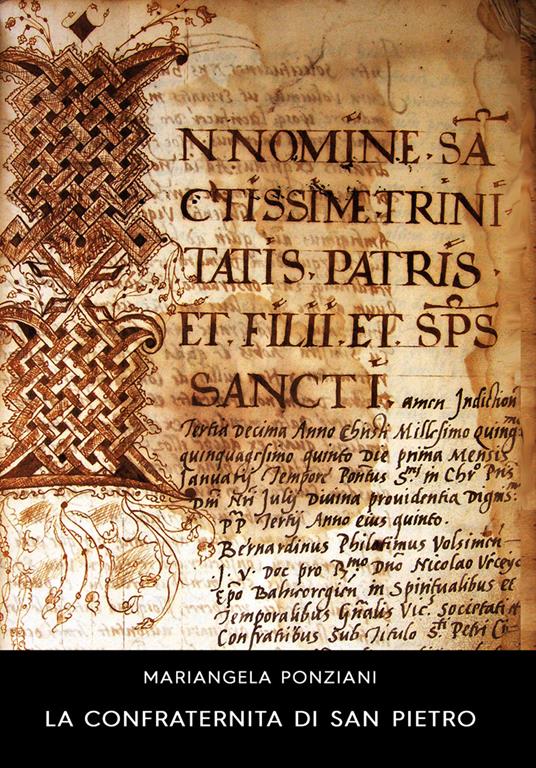 IN NOMINE. SA
CTISSIME. TRINI
TATIS. PATRIS.
ET. FILII. ET. SPS
SANCTI. amen Indiction
Tertia Decima Anno Christi Millesimo quinq
quinquagesimo quinto Die prima Mensis
Januarij Tempore Pontus S.mi in Chro Pris
Dni Nri Julij Divina providentia Digms.
PP Tertij Anno eius quinto.
Bernardinus Philotimus Volsimen
J. V. Doc pro Rmo Dno Nicolao
Epo Balneoregien in Spiritualibus et
Temporalibus Gnalis Vic. Societati et
Confratribus Sub Titulo Sti Petri
MARIANGELA PONZIANI
LA CONFRATERNITA DI SAN PIETRO